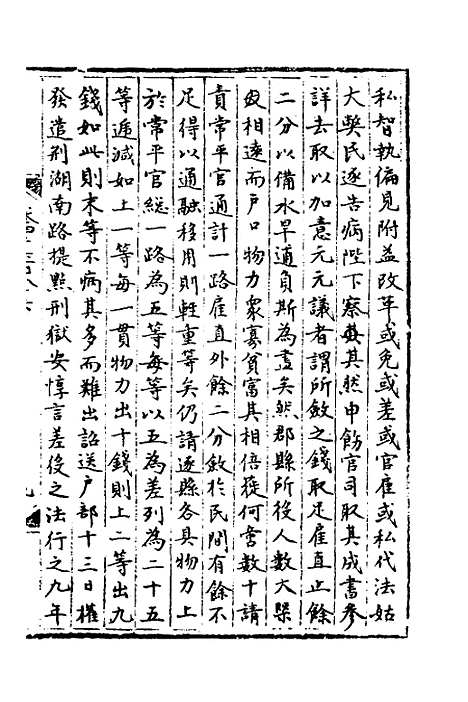 私智執偏見附益改革或免或差或官雇或私代法姑
大獘民逐告病陛下察其然申飭官司取其成書參
詳去取以加意元元議者謂所斂之錢取足雇直止餘
二分以備水旱逋負斯為盡矣然郡縣所役人數大槩
相逺而戸口物力衆寡貧富其相倍蓰何啻數十請
責常平官通計一路雇直外餘二分斂於民間有餘不
足得以通融移用則輕重等矣仍請逐縣各具物力上
於常平官総一路為五等每等以五為差列為二十五
等逓減如上一等每一貫物力出十錢則上二等出九
錢如此則末等不病其多而難出詔送戸部十三日權
發遣荆湖南路提㸃刑獄安惇言差役之法行之九年